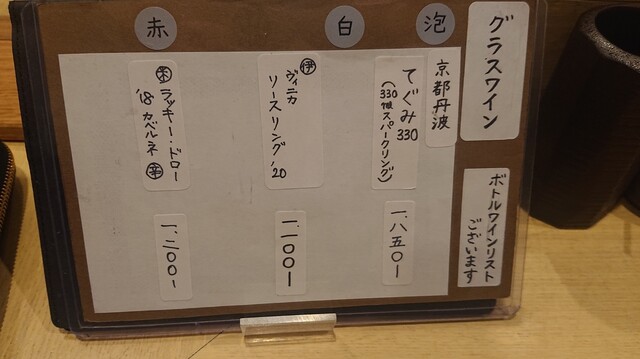 グラスワイン
ボトルワインリスト
ございます
泡
京都丹波
てぐみ330
(330mlスパークリング)
一、八五〇ー
白
伊
ヴィニカ
ソースリング '20
一、一〇〇ー
赤
米
ラッキー・ドロー
'18 カベルネ 辛
一、二〇〇ー